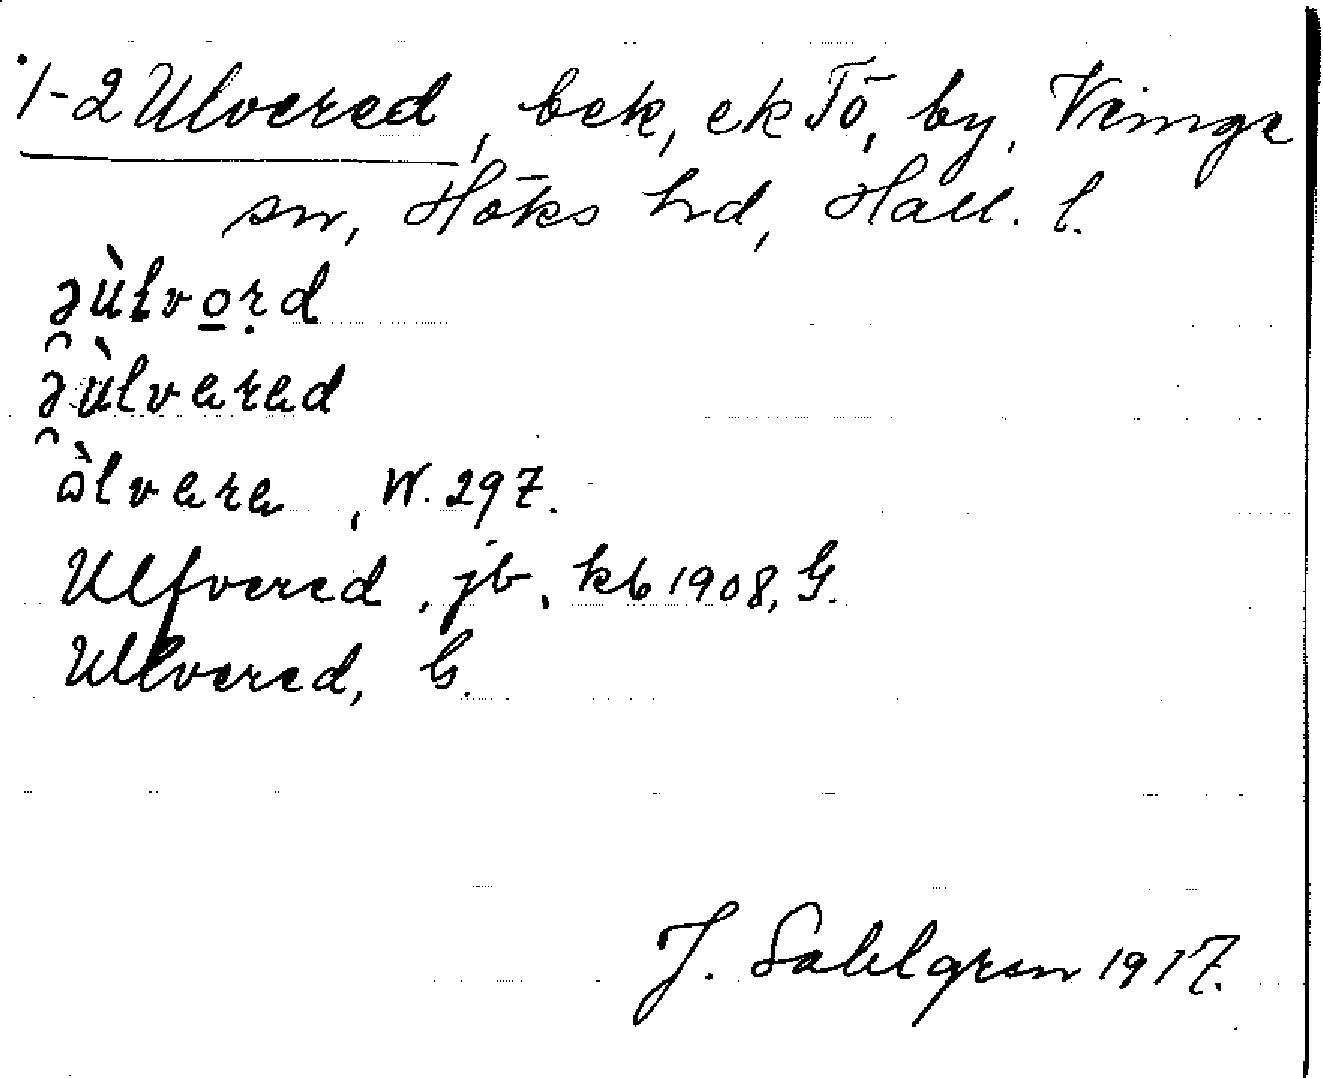 1-2 Ulvered, bek, ek Tö, by, Veinge
sn, Höks hrd, Hall. l.
ə̯ùlvo̱ṛd
ə̯ùlvered
òlvere, W. 297.
Ulfvered, jb, kb 1908, G.
Ullvered, G.
J. Sahlgren 1917.